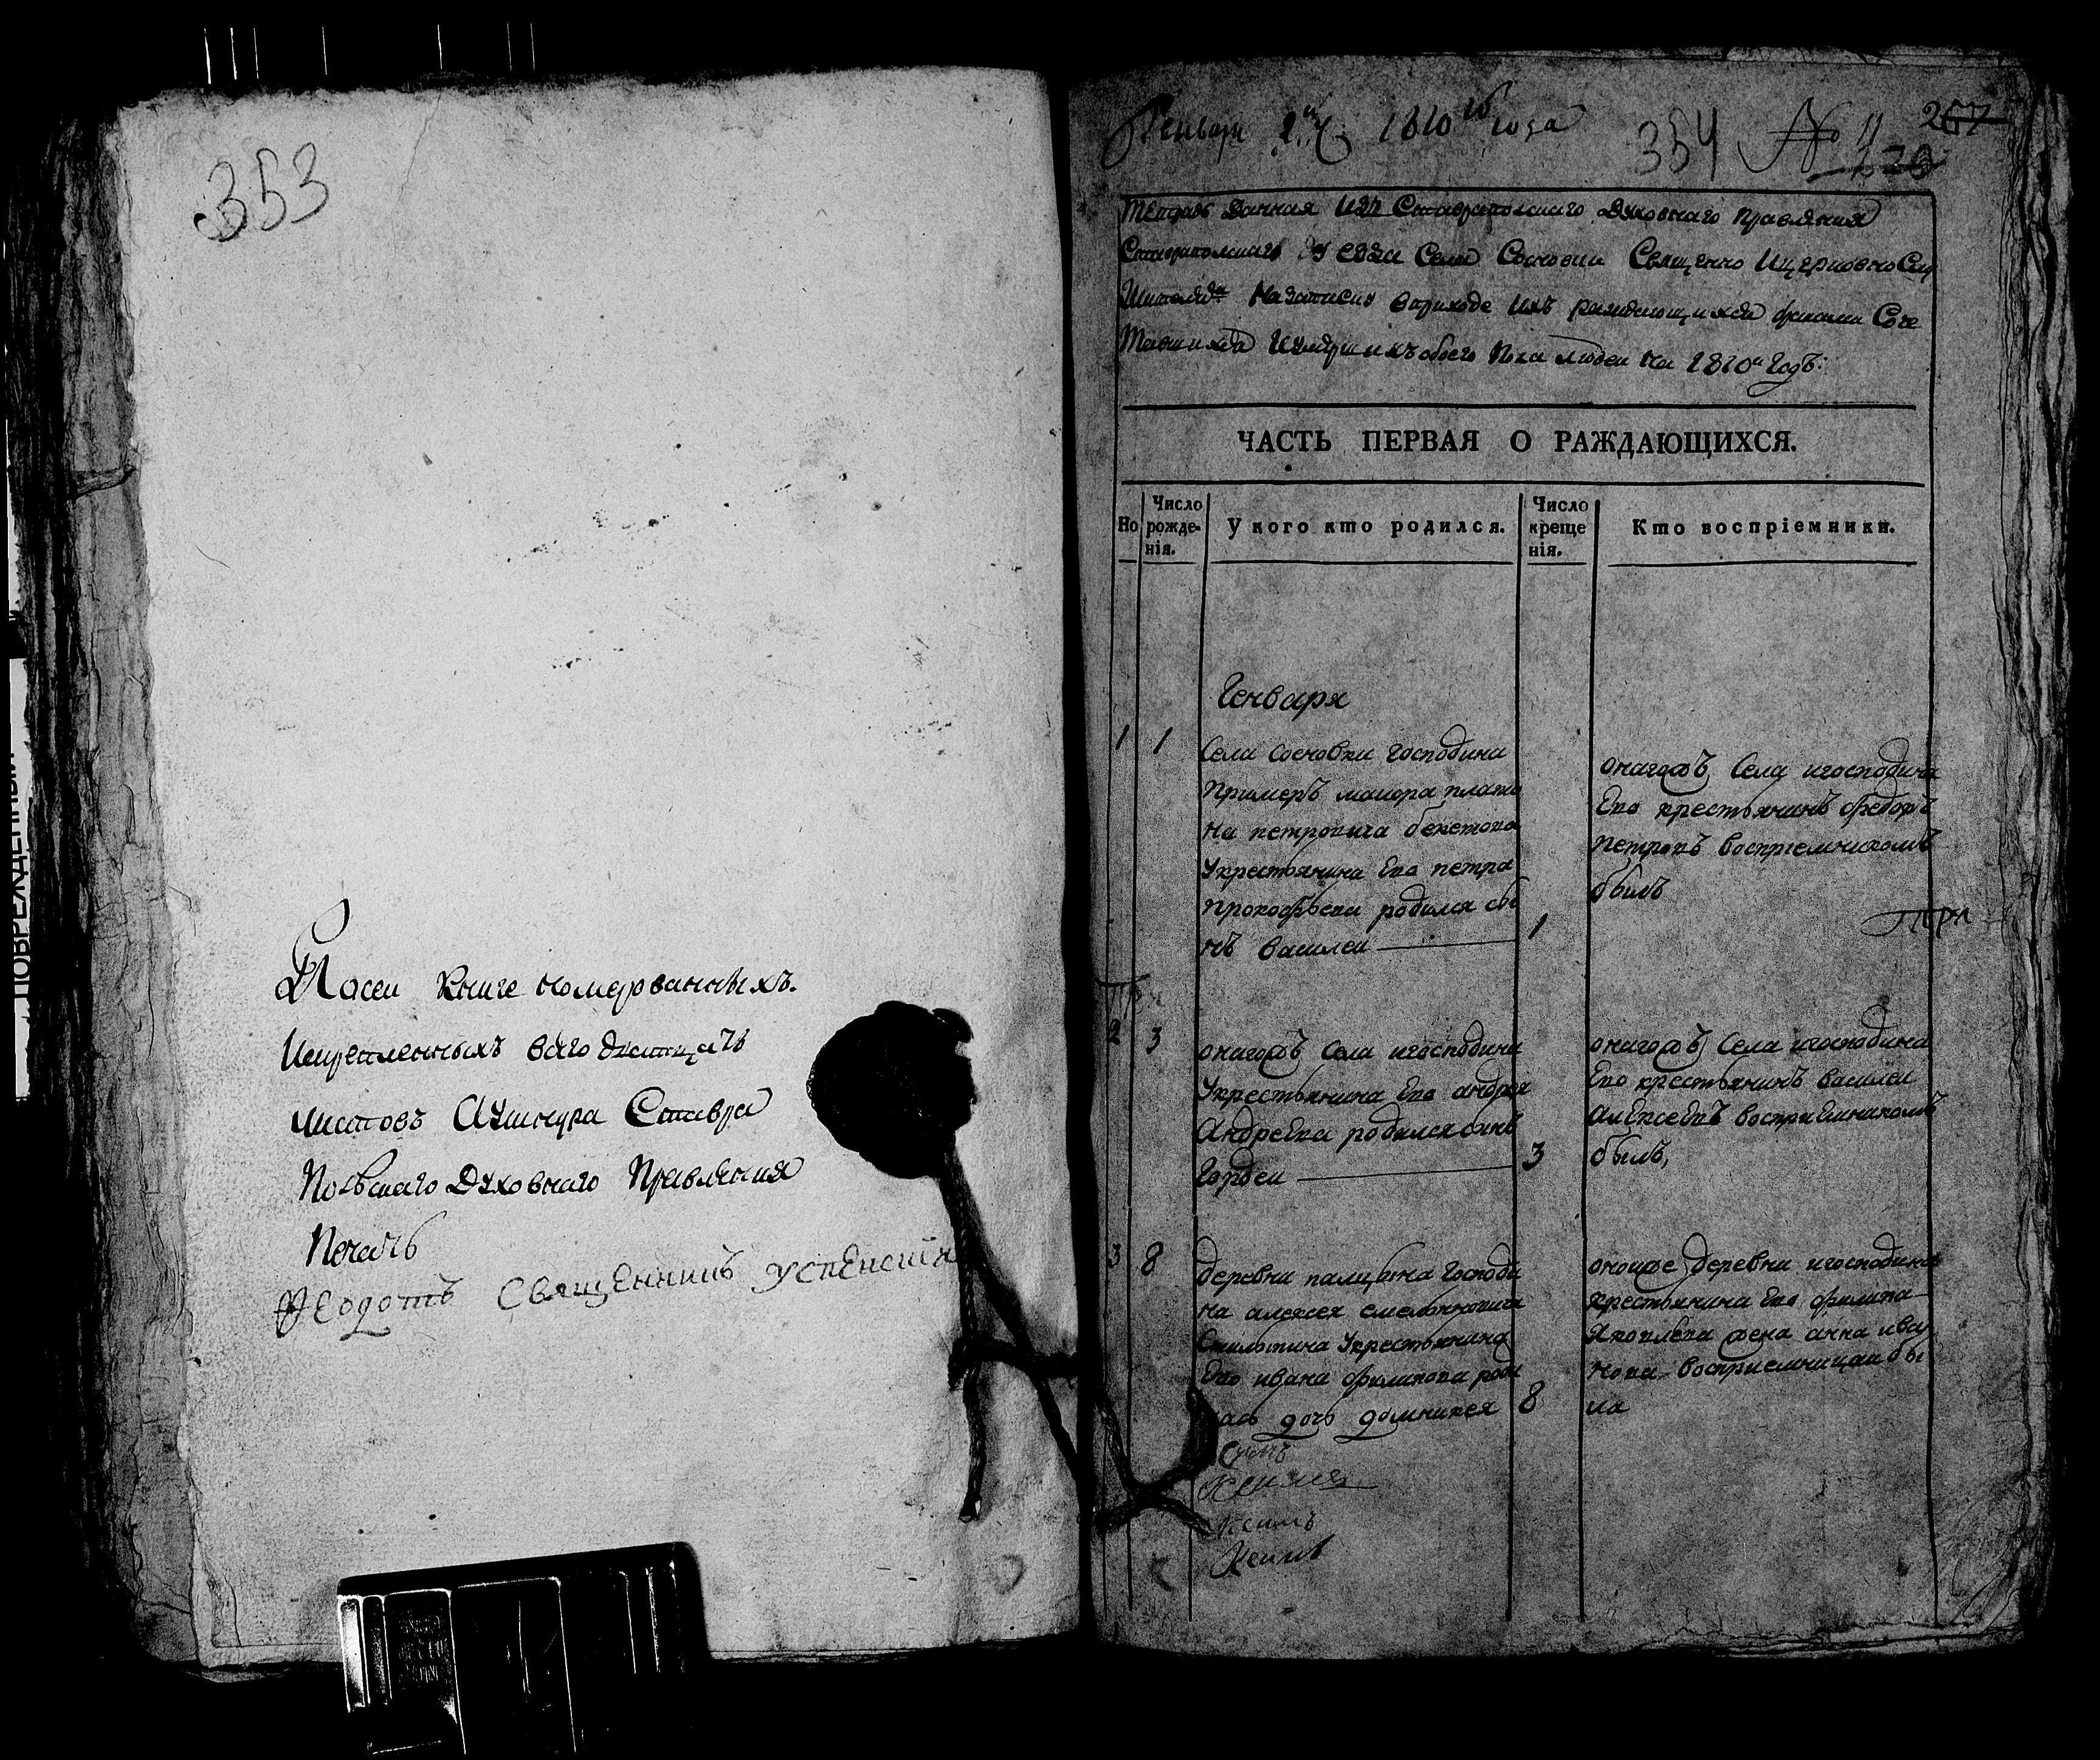 353
По сей книге номерованныхъ
и скрепленныхъ всего дватцать
листовъ А у шнура Ставро
польскаго Духовнаго Правления
Печать
Феодотъ Священникъ Успенский
ПОВРЕЖДЕННЫЙ
Генваря 1810го года
354 № 11 267
Тетрадь данная изъ Ставропольскаго Духовнаго Правления
Ставропольскаго уезда Села Сосновки Священно и церковно слу
жителямъ На записку в приходе ихъ раждающихся браками Соче
тавшихся и умершихъ обоего пола людеи на 1810й годъ:
ЧАСТЬ ПЕРВАЯ О РАЖДАЮЩИХСЯ.
Но
Число рожде-нія.
У кого кто родился.
Число креще нія.
Кто воспріемники.
Генваря
1 1
Села сосновки господина
примеръ маиора плато
на петровича бекетова
у крестьянина Ево петра
прокофьева родился сы
нъ василеи
1
онагожъ села и господина
Ево крестьянинъ федоръ
петровъ восприемникомъ
былъ
2 3
онагожъ села и господина
у крестьянина Ево андрея
Андреева родился сынъ
Гордеи
3
онагожъ села и господина
Ево крестьянинъ василеи
алексеевъ восприемникомъ
былъ,
3 8
деревни палицына господи
на алексея емельяновича
у крестьянина
Ево ивана филипова роди
лась дочь домникея
8
оноиже деревни и господина
крестьянина Ево филипа
яковлева жена анна ива
нова восприемницаи бы
ла